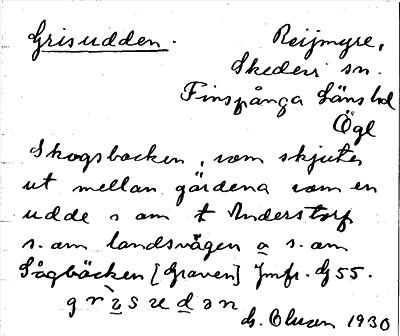 Grisudden. Reijmyre,
Skedevi sn.
Finspånga Läns hd
Ögl
Skogsbacken, som skjuter
ut mellan gärdena som en
udde s om t Anderstorp
s. om landsvägen o s. om
Sågbäcken [Graven] Jmfr. G 55.
grìsuden
G. Olsson 1930